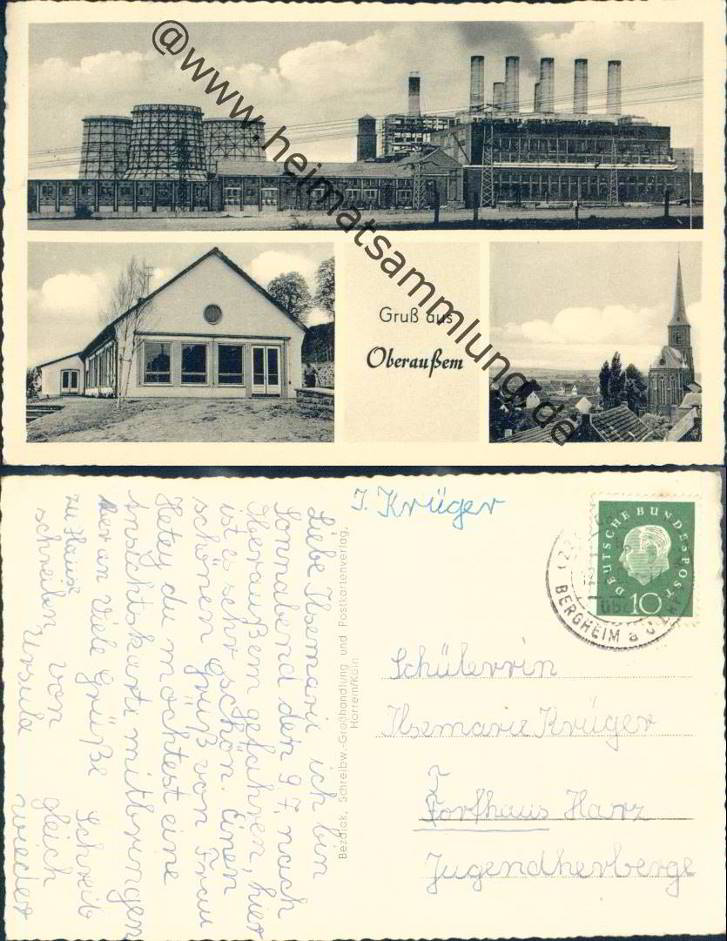 @www.heimatsammlung.de
Gruß aus
Oberaußem
J. Krüger
DEUTSCHE BUNDESPOST
10
BERGHEIM
Schülerrin
Ilsemarie Krüger
Torfhaus Harz
Jugendherberge
Bezdiak, Schreibw.-Großhandlung und Postkartenverlag,
Horrem/Köln
Liebe Ilsemarie ich bin
Sonnabend den 9 7. nach
Oberaußem gefahren, hier
ist es sehr schön. Einen
schönen Grüß von Frau
du möchtest eine
Ansichtskarte mitbringen
Viele Grüße Schreib
zu Hause gleich
schreiben von wieder
Ursula